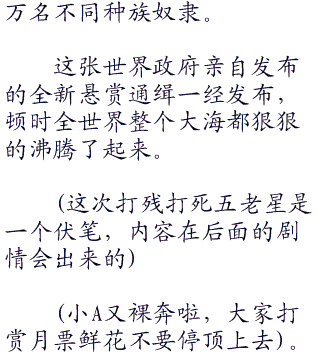 万名不同种族奴隶。
这张世界政府亲自发布
的全新悬赏通缉一经发布，
顿时全世界整个大海都狠狠
的沸腾了起来。
(这次打残打死五老星是
一个伏笔，内容在后面的剧
情会出来的)
(小A又裸奔啦，大家打
赏月票鲜花不要停顶上去)。